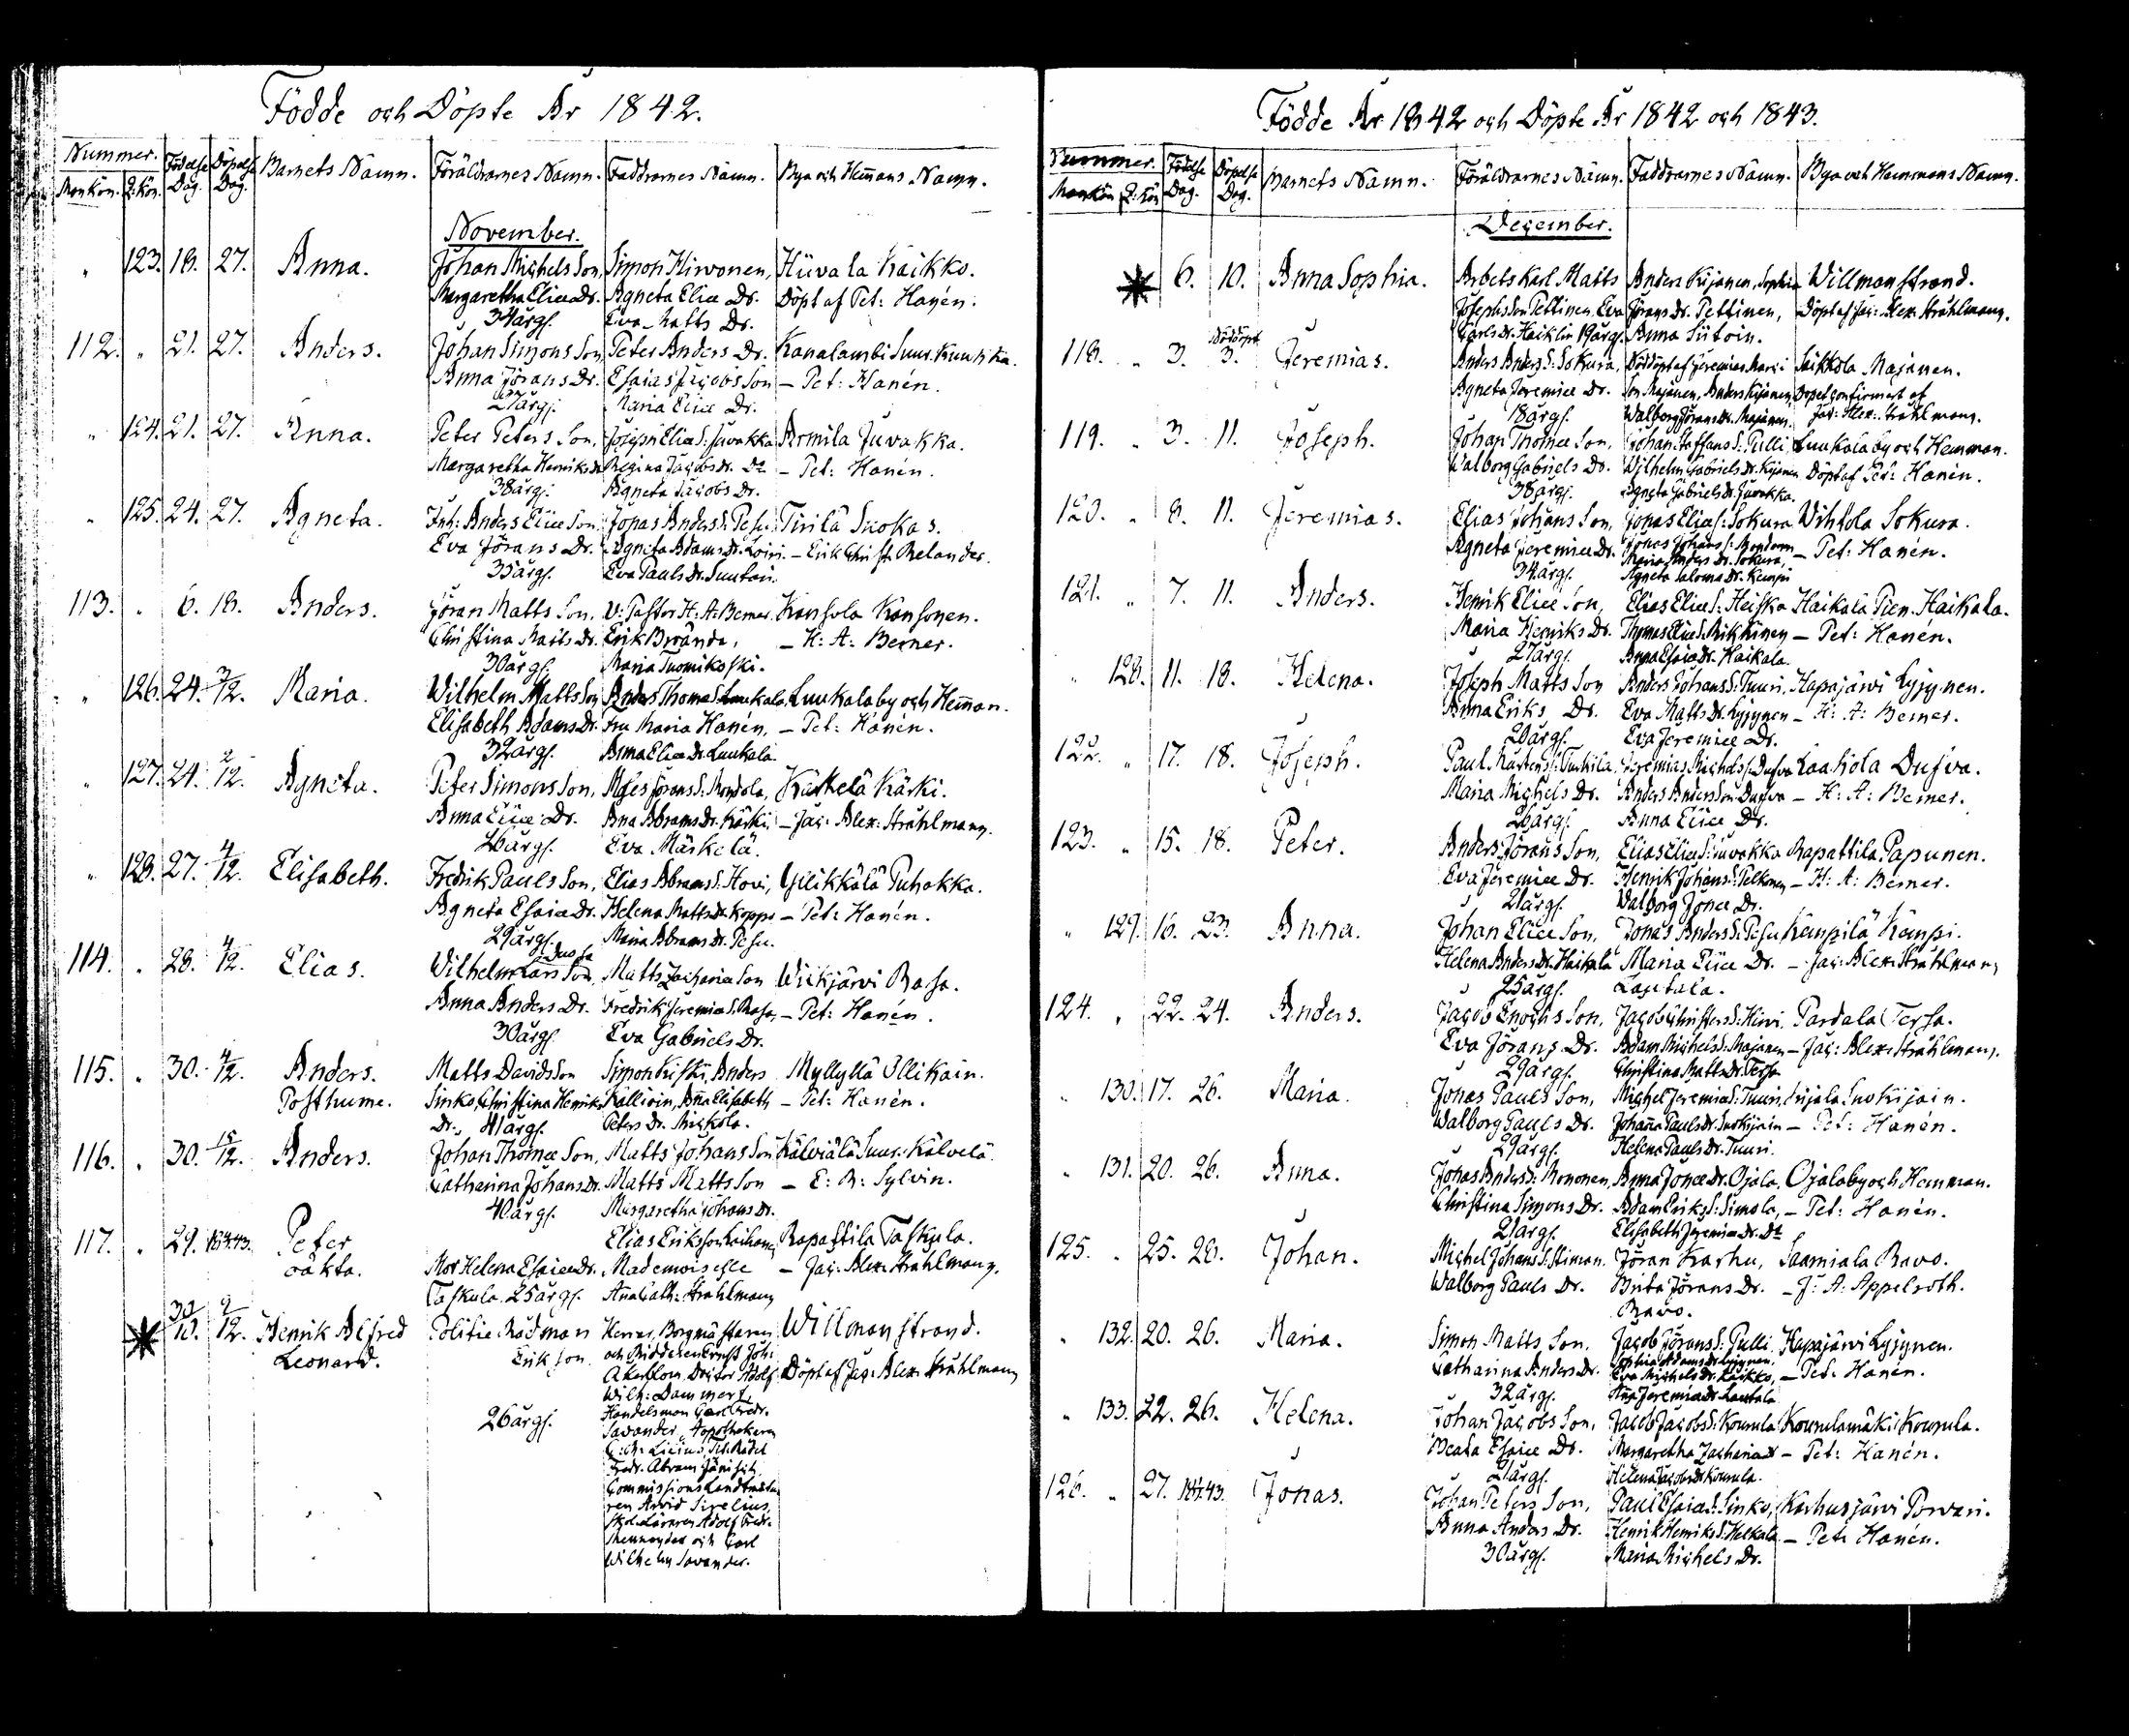 Födde och Döpte År 1842.
Nummer. Födelse Dag. Döpelse Dag. Barnets Namn. Föräldrarnes Namn. Faddrarnes Namn. Bya och Hemans Namn.
Mankön. Q:kön.
November.
" 123. 18. 27. Anna. Johan Michels Son, Simon Hirvonen, Hüvala Kaikko.
Margaretha Eliæ Dr. Agneta Eliæ Dr. Döpt af Pet: Hanén.
34 årg. Eva Matts Dr.
112. " 21. 27. Anders. Johan Simons Son Peter Anders Dr. Kanalambi Suur. Kuukka.
Anna Jörans Dr. Esaias Jacobs Son – Pet: Hanén.
27 årg. Maria Eliæ Dr.
" 124. 21. 27. Anna. Peter Peters Son, Joseph Eliæ S: Juvakka Armila Juvakka.
Margaretha Henriks Dr. Regina Jacobs Dr. Do – Pet: Hanén.
38 årg. Agneta Jacobs Dr.
" 125. 24. 27. Agneta. Inh: Anders Eliæ Son Jonas Anders S: Pesu Tirilä Suokas.
Eva Jörans Dr. Agneta Adams Dr. Loiri – Erik Christ. Relander.
35 årg. Eva Pauls Dr. Suutari.
113. " 6. 18. Anders. Jöran Matts Son, V: Pastor H: A: Berner Kansola Kansonen.
Christina Matts Dr. Erik Brände, – H: A: Berner.
30 årg. Maria Tuomikoski.
" 126. 24. 3/12. Maria. Wilhelm Matts Son Anders Thomæ S. Luukala, Luukala by och Heman.
Elisabeth Adams Dr. Fru Maria Hanén, – Pet: Hanén.
32 årg. Anna Eliæ Dr. Luukala.
" 127. 24. 2/12. Agneta. Peter Simons Son, Moses Jörans S: Mondola, Kärkelä Kärki.
Anna Eliæ Dr. Ana Abrams Dr. Kärki, – Jac: Alex: Strählmann.
26 årg. Eva Märkelä.
" 128. 27. 4/12. Elisabeth. Fredrik Pauls Son, Elias Abrams S. Hovi, Ylikkälä Puhakka.
Agneta Esaiæ Dr. Helena Matts Dr. Koppo – Pet: Hanén.
29 årg. Maria Abrams Dr. Pesu.
114. " 28. 4/12. Elias. Wilhelm Lars Son Matts Zacharia Son Wilkjärvi Rasa.
Anna Anders Dr. Fredrik Jeremiæ S. Rasa, – Pet: Hanén.
30 årg. Eva Gabriels Dr.
115. " 30. 4/12. Anders. Matts Davids Son Simon Kiski, Anders Myllylä Ollikain.
Posthume. Sinko, Christina Henriks Kallioin, Aña Elisabeth – Pet: Hanén.
Dr., 41 årg. Peters Dr. Mickola.
116. " 30. 15/12. Anders. Johan Thomæ Son, Matts Johans Son Kälviälä Suur-Kälvelä.
Catharina Johans Dr. Matts Matts Son – E: R: Sylvin.
40 årg. Margaretha Johans Dr.
117. " 29. Peter Elias Eriks Son Rapattila Taskula.
oäkta. Mor Helena Esaiæ Dr. Mademoiselle – Jac: Alex: Strählmann.
Taskula. 25 årg. Aña Cath: Strahlmann
30/10. 9/12. Henrik Alfred Politie Rådman Herrar, Borgmästaren Willmanstrand.
Leonard. Erikson. och Riddaren Ernst Joh: Döpt af Jac: Alex: Strählmann
Akerblom, Doctor Adolf
Wilh: Dammert,
26 årg. Handelsman Carl Fredr.
Savander, Apothekaren
Fredr. Abram
Commissions Landtmäta
ren Arvid Sirelius,
Skol-Läraren Adolf Fredr.
och Carl
Wilhelm Savander.
Födde År 1842 och Döpte År 1842 och 1843.
Nummer. Födelse Dag. Döpelse Dag. Barnets Namn. Föräldrarnes Namn. Faddrarnes Namn. Bya och Hemmans Namn.
Mankön Q:kön
December.
6. 10. Anna Sophia. Arbets Karl Matts Anders Kijanen, Sophia Willmanstrand.
Josephs Son Pettinen, Eva Jörans Dr. Pettinen, Döpt af Jac: Alex: Strählmann.
Carls Dr. Häiklin 19 årg. Anna Sütoin.
118. " 3. Nöddöpt 3. Jeremias. Anders Anders S: Sokura, Nöddöpt af Jeremias Marci Saikkola Majanen.
Agneta Jeremiæ Dr. Son Majanen, Anders Kijanen, Dopet confirmert af
18 årg. Walborg Jörans Dr. Majanen. Jac: Alex: Strählmann.
119. " 3. 11. Joseph. Johan Thomæ Son, Johan Staffans S: Pulli Luukala by och Hemman.
Walborg Gabriels Dr. Wilhelm Gabriels Dr. Kijanen Döpt af Pet: Hanén.
38 årg. Agneta Gabriels Dr. Juvakka.
120. " 8. 11. Jeremias. Elias Johans Son, Jonas Eliæ S: Sokura Wihtola Sokura.
Agneta Jeremiæ Dr. Jonas Johans S: – Pet: Hanén.
Maria Anders Dr. Sokura,
34 årg. Agneta Saloma Dr. Kempi
121. " 7. 11. Anders. Henrik Eliæ Son, Elias Eliæ S: Heiska Haikala Pien. Haikala.
Maria Henriks Dr. Thomas Eliæ S. Mikkinen – Pet: Hanén.
27 årg. Anna Esaiæ Dr. Haikala.
" 128. 11. 18. Helena. Joseph Matts Son Anders Johans S: Tuuri, Hapajärvi Lyjynen.
Anna Eriks Dr. Eva Matts Dr. Lyjynen – H: A: Berner.
20 årg. Eva Jeremiæ Dr.
122. " 17. 18. Joseph. Paul Mårtens S: Tuskila, Jeremias Michels S. Dufva Laakola Dufva.
Maria Michels Dr. Anders Anders Son Dufva – H: A: Berner.
26 årg. Anna Eliæ Dr.
123. " 15. 18. Peter. Anders Jörans Son, Elias Eliæ S: Juvakka Rapattila Papunen.
Eva Jeremiæ Dr. Henrik Johans S: Pelkonen – H: A: Berner.
21 årg. Walborg Jonæ Dr.
" 129. 16. 23. Anna. Johan Eliæ Son, Jonas Anders S: Pesu Kämpilä Kämpi.
Helena Anders Dr. Haikala Maria Eliæ Dr. – Jac: Alex: Strählmann,
25 årg. Lautala.
124. " 22. 24. Anders. Jacob Enochs Son, Jacob Christers S: Hirvi, Pardala Tersa.
Eva Jörans Dr. Adam Michels S: Majanen – Jac: Alex: Strählmann.
29 årg. Christina Matts Dr. Tersa
" 130. 17. 26. Maria. Jonas Pauls Son, Michel Jeremiæ S: Tuuri, Kirjala Suokijain.
Walborg Pauls Dr. Johaña Pauls Dr. Suokijain – Pet: Hanén.
29 årg. Helena Pauls Dr. Tuuri.
" 131. 20. 26. Anna. Jonas Anders S: Mononen, Anna Jonæ Dr. Ojala, Ojala by och Hemman.
Christina Simons Dr. Adam Eriks S: Simola, – Pet: Hanén.
21 årg. Elisabeth Jeremiæ Dr. Do
125. " 25. 26. Johan. Michel Johans S. Himan. Jöran Karhu, Saamiala Ravo.
Walborg Pauls Dr. Brita Jörans Dr. – J: A: Appelroth.
Ravo.
" 132. 20. 26. Maria. Simon Matts Son, Jacob Jörans S: Pulli Hapajärvi Lyjynen.
Catharina Anders Dr. Sophia Adams Dr. Lyjynen, – Pet: Hanén.
Eva Michels Dr. Kaikko,
32 årg. Aña Jeremiæ Dr. Lautala
" 133. 22. 26. Helena. Johan Jacobs Son, Jacob Jacobs S: Kourula Kourulamäki Kourula.
Beata Esaiæ Dr. Margaretha Zachariæ Dr – Pet: Hanén.
21 årg. Helena Jacobs Dr Kourula.
126. " 27. Jonas. Johan Peters Son, Paul Esaiæ S. Sinko, Karhusjärvi Porvari.
Anna Anders Dr. Henrik Henriks S. Helkala – Pet: Hanén.
30 årg. Maria Michels Dr.